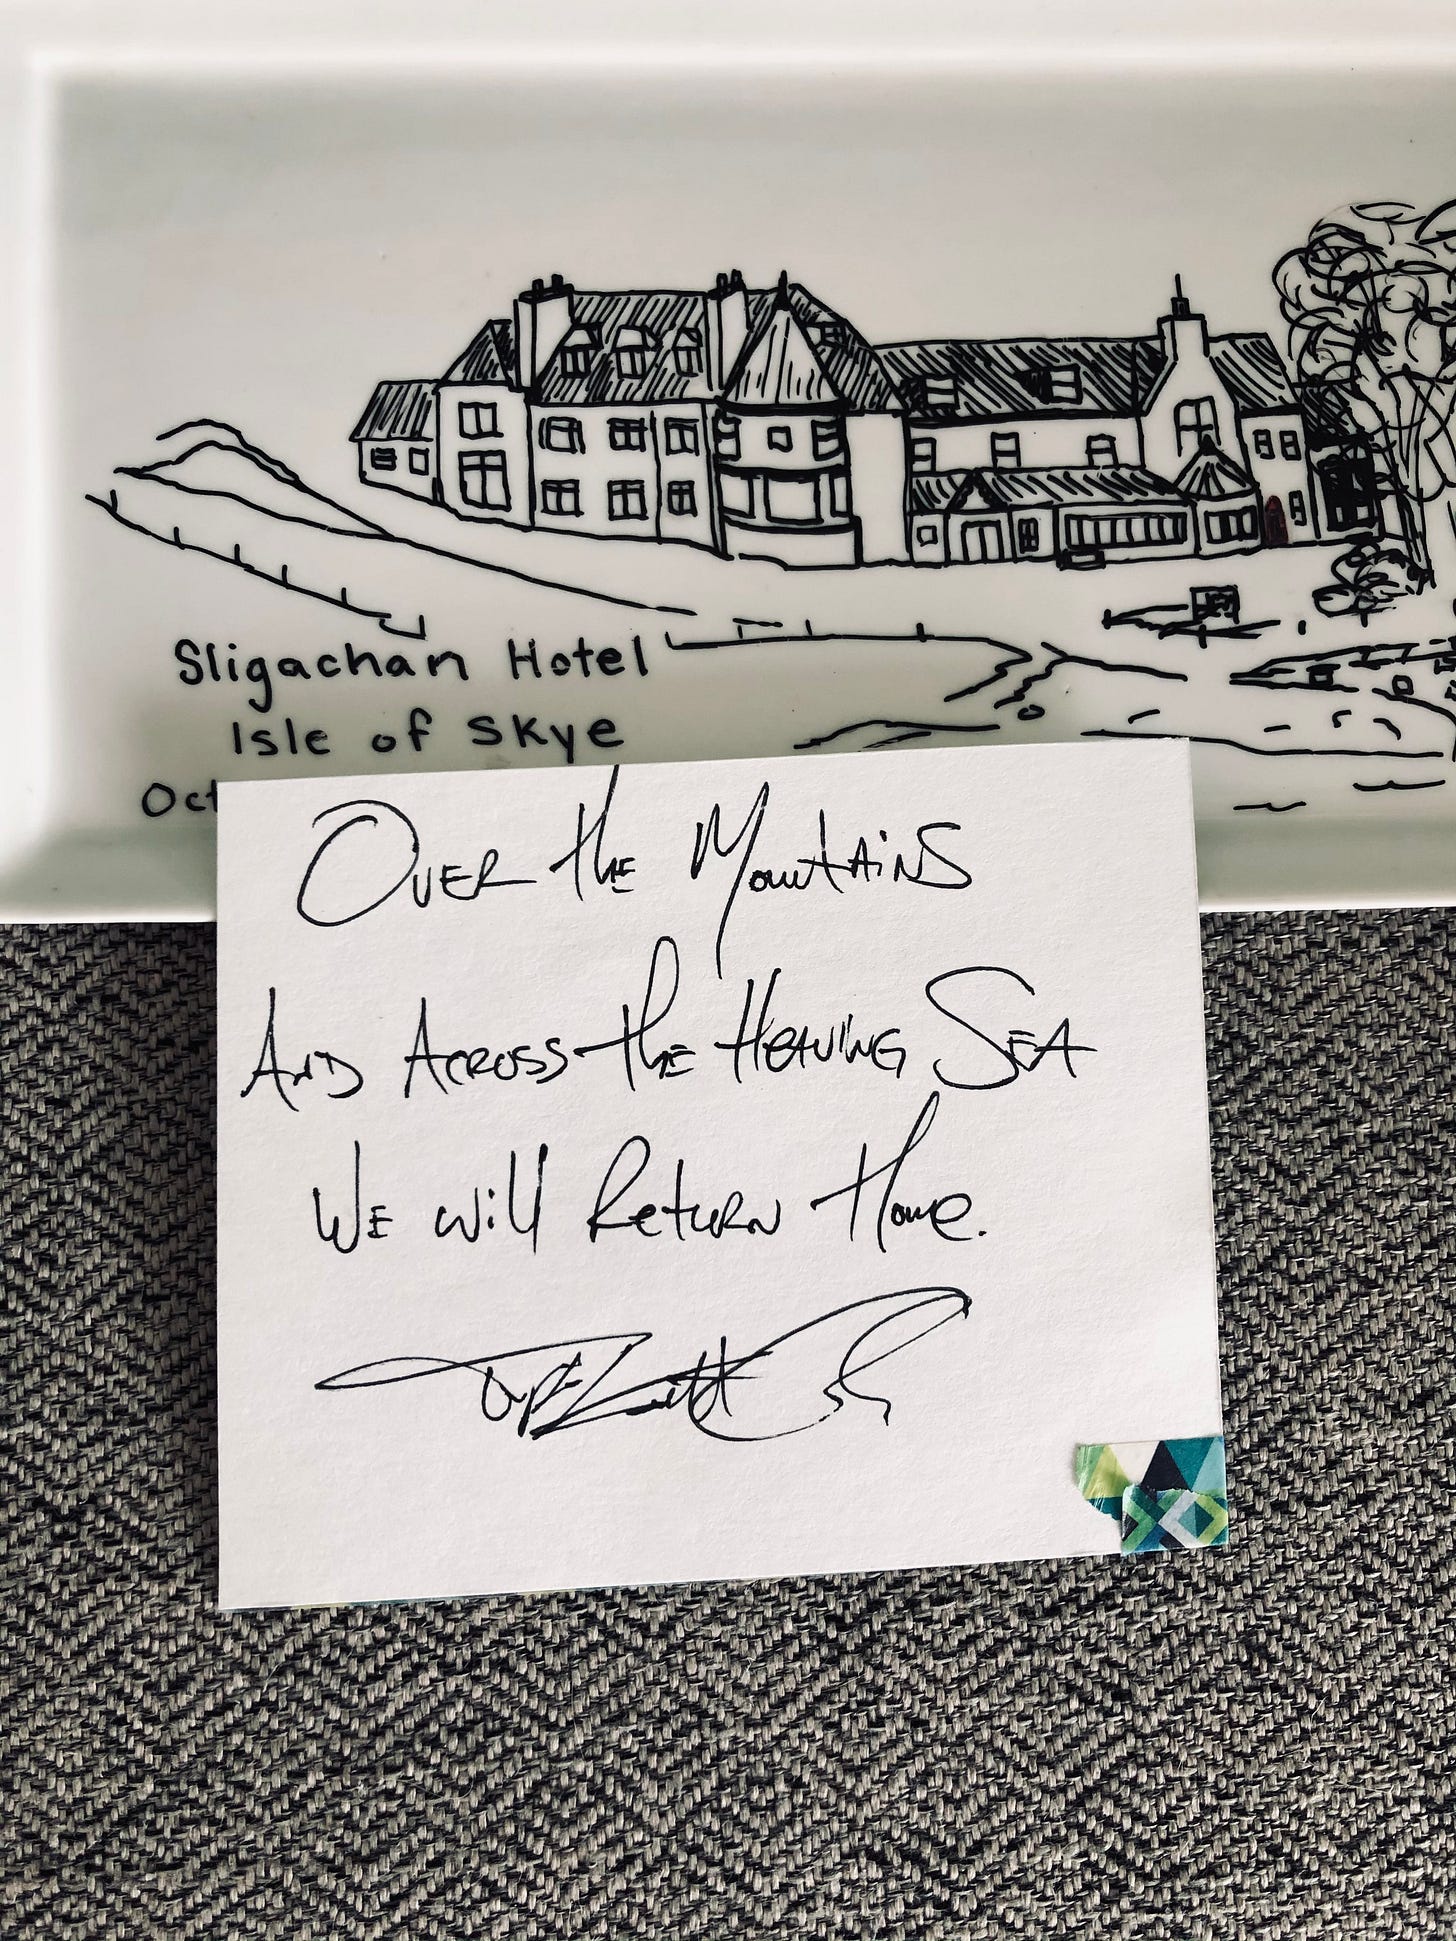 Sligachan Hotel
Isle of Skye
Oct
Over the Mountains
And Across the Heaving Sea
We will Return Home.